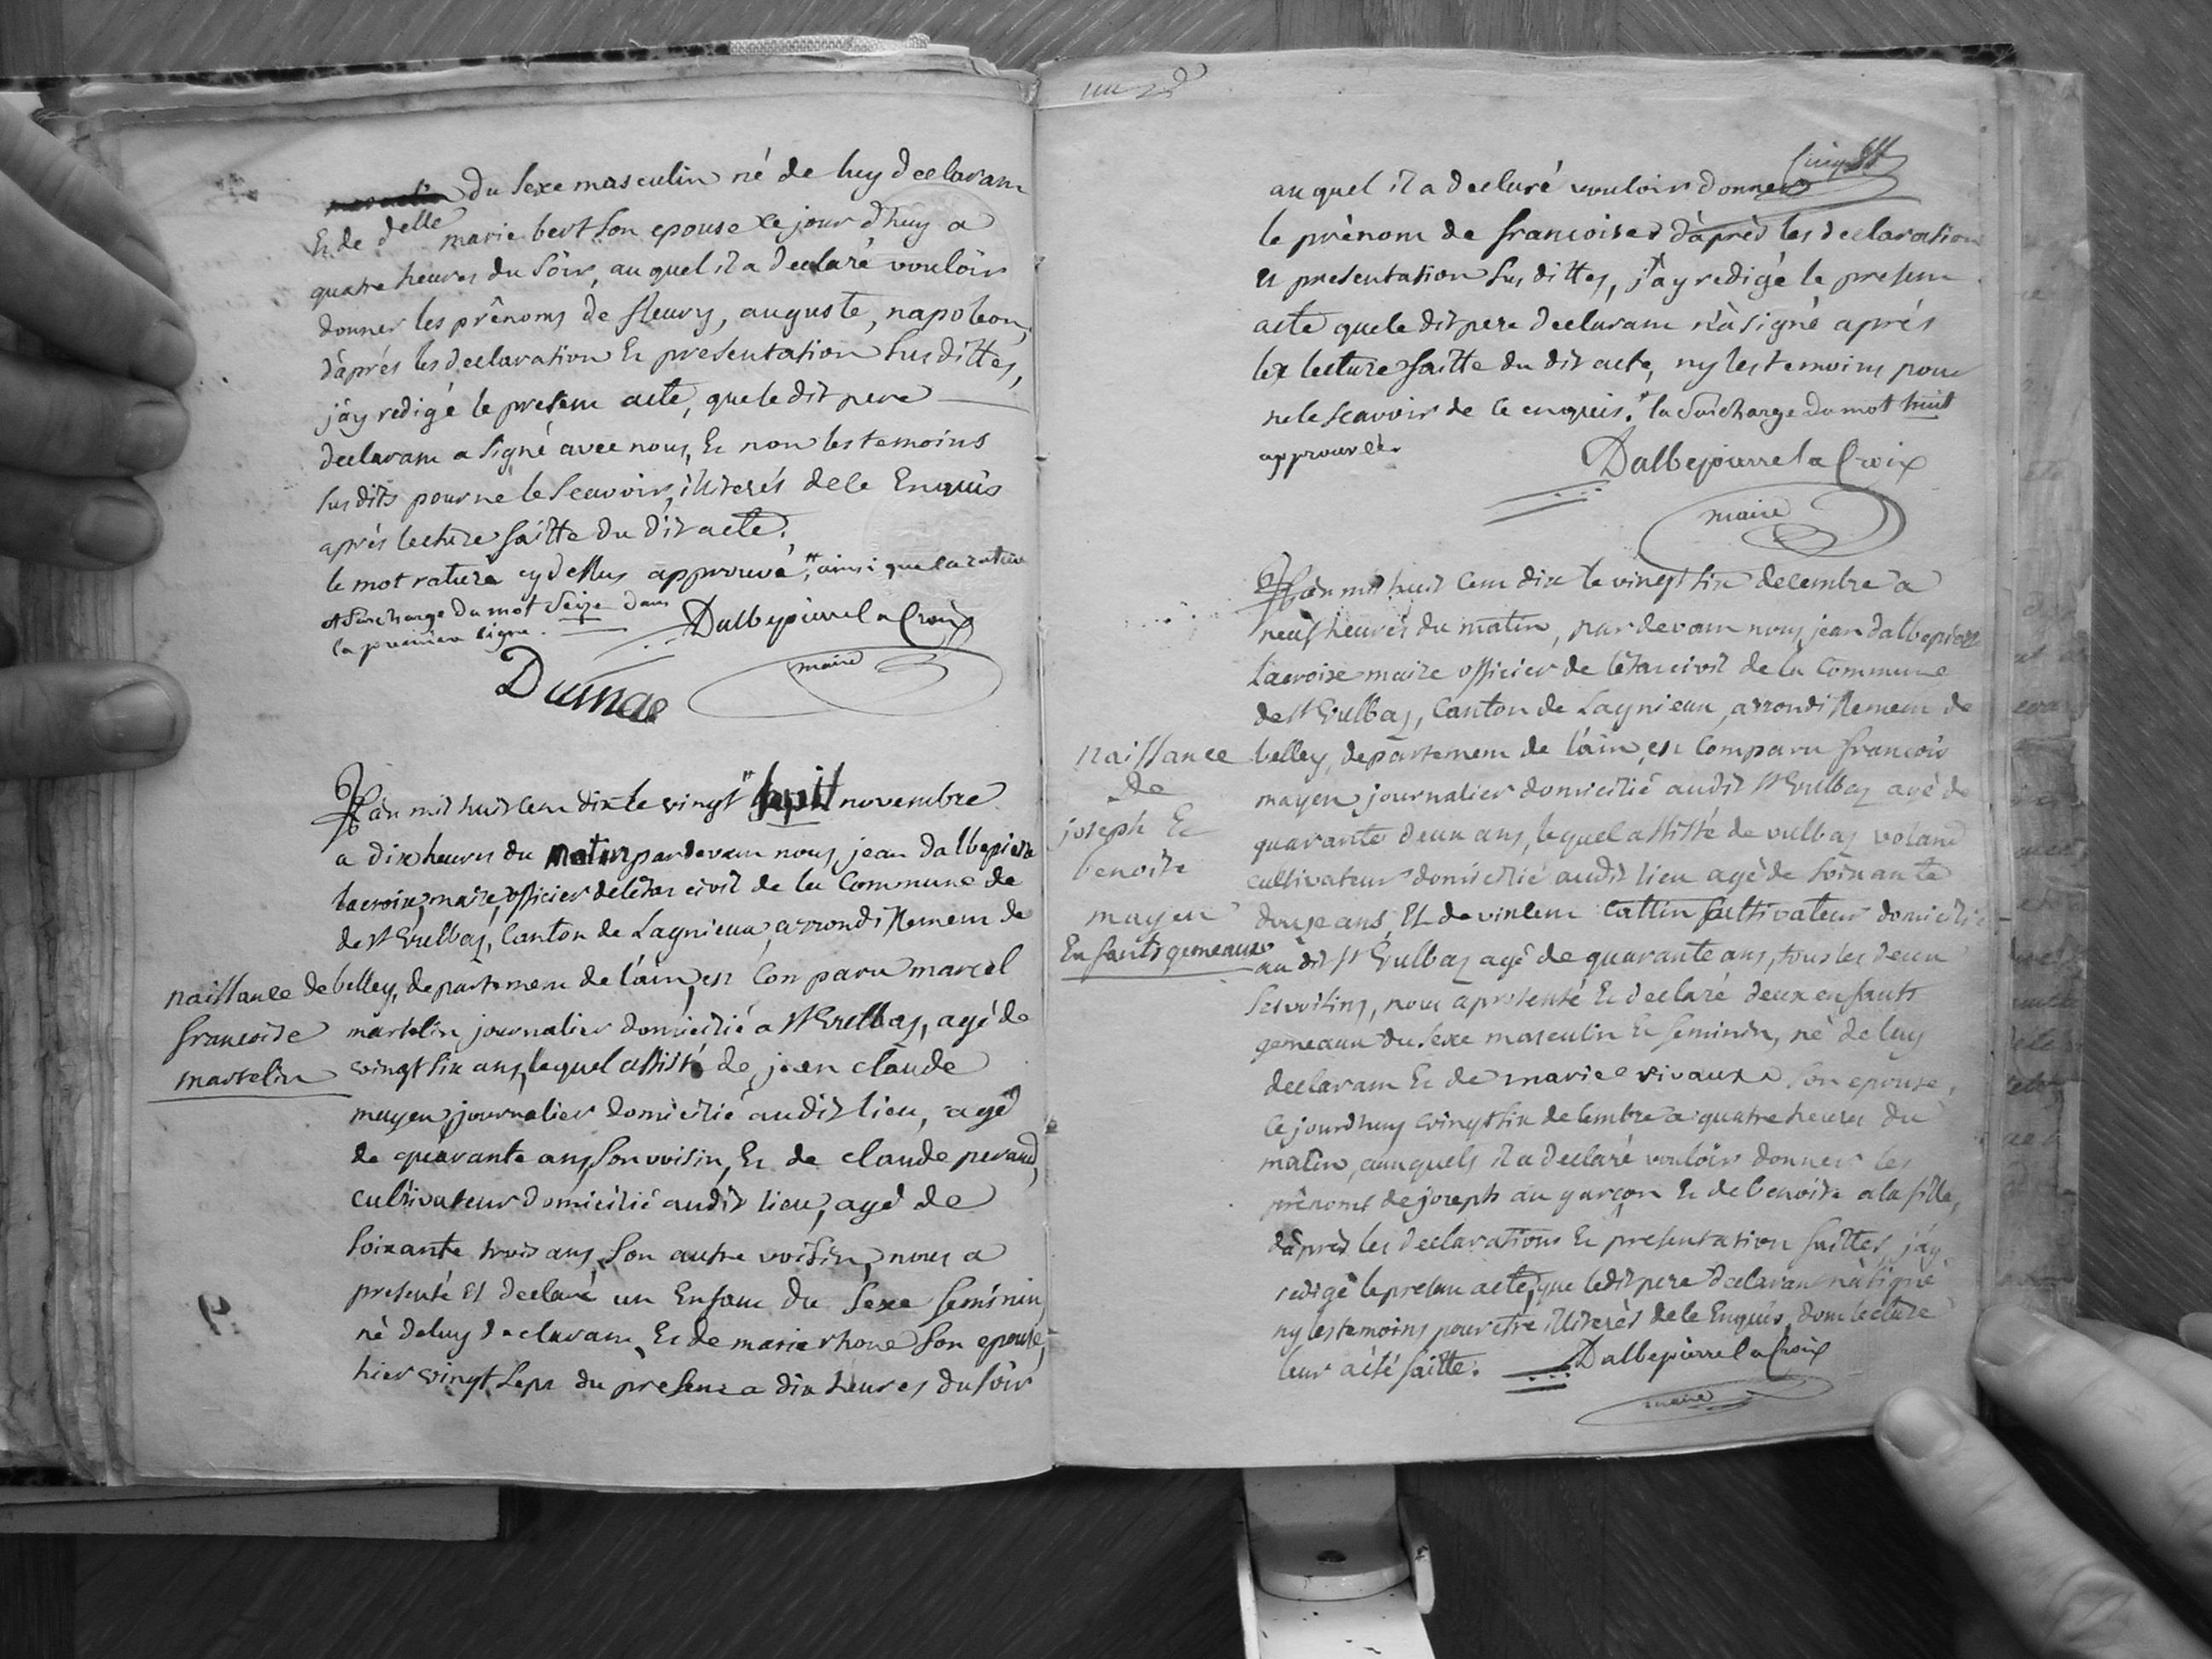 du sexe masculin né de luy declarant
Et de delle marie bert son epouse ce jour dhuy a
quatre heures du soir, au quel il a declaré vouloir
donner les prênoms de fleury, auguste, napoleon,
d'aprés les declaration Et presentation sus dittes,
j'ay redigé le present acte, que le dit pere
declarant a signé avec nous, Et non les temoins
sus dits pour ne le scavoir, illiterés de ce Enquis
aprés lecture faitte du dit acte.
le mot raturé cy dessus approuvé, ainsi que la rature
et surcharge du mot seize dans
la premiere ligne.
Dalbepierre la Croix
maire
Dumas
L'an mil huit cent dix le vingt huit novembre
a dix heures du matin pardevant nous jean dalbepierre
lacroix, maire, officier de l'êtat civil de la Commune de
de St Vulbas, Canton de Lagnieux, arrondissement de
naissance de
francoise
martelin
belley, departement de l'ain, est Comparu marcel
martelin journalier domicilié a St Vulbas, agé de
vingt six ans, lequel assisté de jean claude
moyen journalier domicilié audit lieu, agé
de quarante ans, son voisin, Et de claude peraud,
cultivateur domicilié audit lieu, agé de
soixante trois ans, son autre voisin, nous a
presenté Et declaré un Enfant du sexe feminin
né de luy declarant, Et de marie rhone son epouse,
hier vingt sept du present a dix heures du soir
au quel il a declaré vouloir donner
le prènom de francoise d'après les declaration
Et presentation sus dittes, j'ay redigé le present
acte que le dit pere declarant n'a signé aprés
la lecture faitte du dit acte, ny les temoins pour
ne le scavoir de ce enquis. la surcharge du mot huit
approuvée.
Dalbepierre la Croix
maire
L'an mil huit cent dix le vingt six decembre a
neuf heures du matin, pardevant nous jean dalbepierre
Lacroix maire officier de l'êtat civil de la Commune
de St Vulbas, Canton de Lagnieux, arrondissement de
naissance
de
joseph Et
benoite
moyen
Enfants gemeaux
belley, departement de l'ain, est Comparu francois
moyen journalier domicilié audit St Vulbas agé de
quarante deux ans, lequel assisté de vulbas voland
cultivateur domicilié audit lieu agé de soixante
douze ans, Et de vincent Cattin Cultivateur domicilié
au dit St Vulbas agé de quarante ans, tous les deux
ses voisins, nous a presenté Et declaré deux enfants
gemeaux du sexe masculin Et feminin, né de luy
declarant Et de marie vivaux son epouse,
ce jourdhuy vingt six decembre a quatre heures du
matin, auxquels il a declaré vouloir donner les
prènoms de joseph au garçon Et de benoite a la fille,
d'après les declarations Et presentation faittes, j'ay
redigé le present acte, que le dit pere declarant n'a signé
ny les temoins pour etre illiterés de ce Enquis, dont lecture
leur a été faitte.
Dalbepierre la Croix
maire